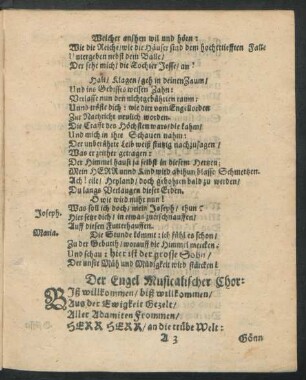 Welcher ansehen wil und hören:
Wie die Reiche/wie die Häuser sind dem hochst tieffen Fall
Untergeben nebst dem Balle/
Der sehe mich/ die Tochter Jesse/ an!
Halt/ Klagen/ geh in deinen Zaum/
Und ins Gebiß
Verlasse nun den
Und tröste dich: wie dir vom Engel Orden
Zur Nachricht neulich worden.
Die Crafft des Höchsten war/ die kahm/
Und mich in ihre Schauen nahm:
Der unberührte Leib weiß künftig nachzusagen/
Was er zuhte getragen:
Der Himmel haust ja selbst in diesem Hertzen;
Mein HERR und Kind wird abthun diese Schmertzen.
Ach! eile/ Heyland/ doch gebohren bald zu werden/
Du langs Verlangen dieser Erden.
O wie wird mihr nun!
Joseph.
Was soll ich doch/ mein Joseph/ thun?
Hier setze dich/ in etwas zuzuschnauffen/
Auff diesen Futterhauffen.
Maria.
Die Stunde kömmt: ich föhl es schon/
Zu der Gebuhrt/ worauff die Himmel mercken.
Und schau: hier ist der grosse Sohn/
Der unsre Müh und Mädigkeit wird stärcken!
Der Engel Musicalischer Chor:
BIß willkommen/ bist willkommen/
Aus der Ewigkeit Gezelt/
Aller Adamiten Frommen/
HERR HERR/ an die trübe Welt:
A 3
Gönn